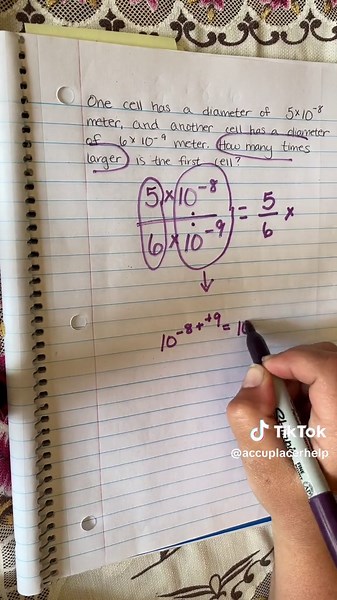 One cell has a diameter of 5×10⁻⁸
meter, and another cell has a diameter
of 6×10⁻⁹ meter. How many times
larger is the first cell?
5×10⁻⁸
÷
6×10⁻⁹
= 5/6 ×
↓
10⁻⁸⁺⁺⁹ = 10
TikTok
@accuplacerhelp